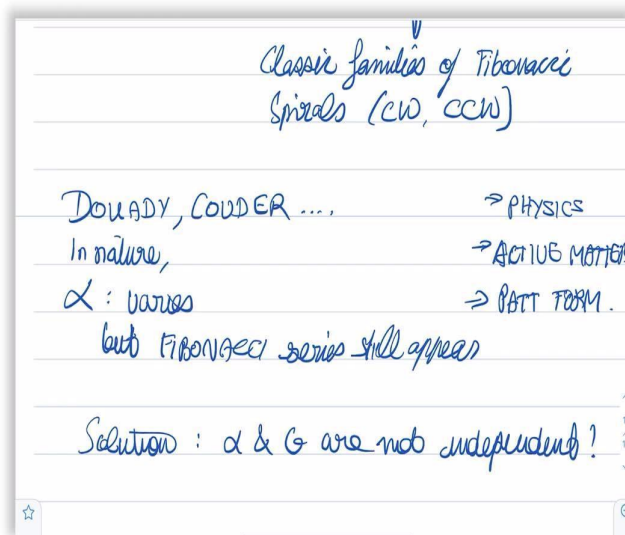 Classic families of Fibonacci
Spirals (CW, CCW)
DOUADY, COUDER ....
→ PHYSICS
In nature,
→ ACTIVE MATTER
α : varies
⇒ PATT FORM.
but FIBONACCI series still appears
Solution : α & G are not independent?